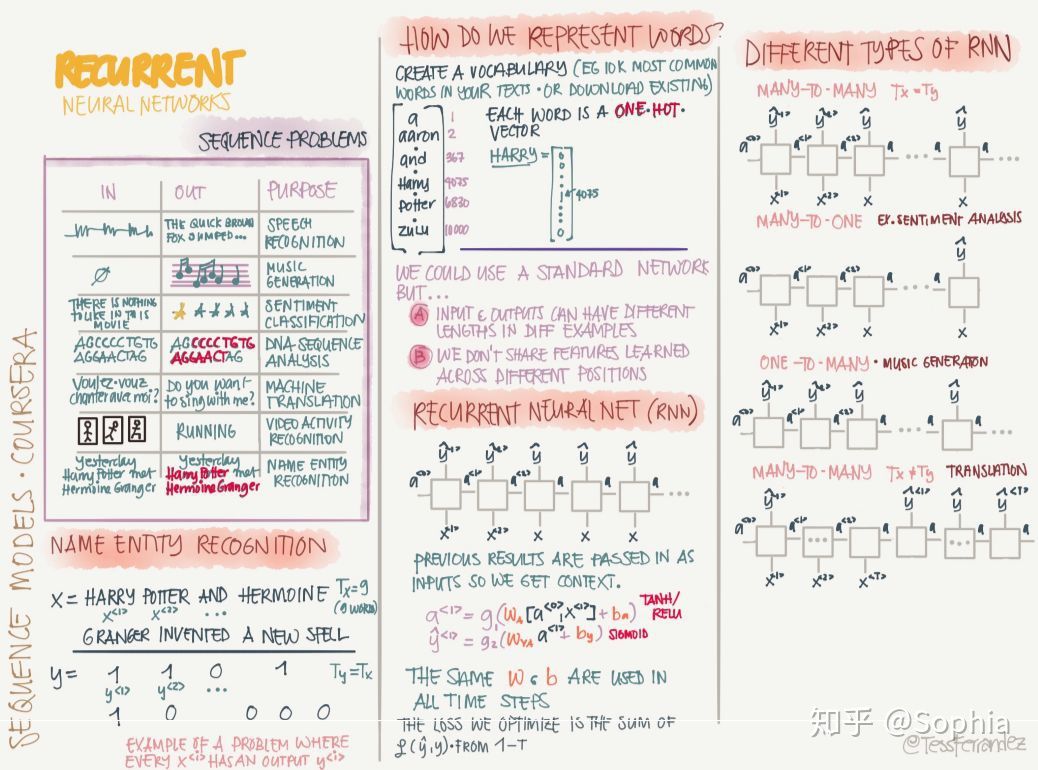 RECURRENT
NEURAL NETWORKS
SEQUENCE PROBLEMS
IN OUT PURPOSE
THE QUICK BROWN FOX JUMPED... SPEECH RECOGNITION
∅ MUSIC GENERATION
THERE IS NOTHING TO LIKE IN THIS MOVIE SENTIMENT CLASSIFICATION
AGCCCCTGTG AGGAACTAG AGCCCCTGTG AGGAACTAG DNA-SEQUENCE ANALYSIS
Voulez-vouz chanter avec moi? Do you want to sing with me? MACHINE TRANSLATION
RUNNING VIDEO ACTIVITY RECOGNITION
Yesterday Harry Potter met Hermoine Granger Yesterday Harry Potter met Hermoine Granger NAME ENTITY RECOGNITION
SEQUENCE MODELS · COURSERA
NAME ENTITY RECOGNITION
X = HARRY POTTER AND HERMOINE Tx=9
x<1> x<2> ... (9 WORDS)
GRANGER INVENTED A NEW SPELL
y = 1 1 0 1 Ty=Tx
y<1> y<2> ...
1 0 0 0 0
EXAMPLE OF A PROBLEM WHERE
EVERY X<i> HAS AN OUTPUT y<i>
HOW DO WE REPRESENT WORDS?
CREATE A VOCABULARY (EG 10K MOST COMMON
WORDS IN YOUR TEXTS · OR DOWNLOAD EXISTING)
a 1
aaron 2
and 367
Harry 4075
Potter 6830
zulu 10000
EACH WORD IS A ONE·HOT·
VECTOR
HARRY = 4075
WE COULD USE A STANDARD NETWORK
BUT...
A INPUT & OUTPUTS CAN HAVE DIFFERENT
LENGTHS IN DIFF EXAMPLES
B WE DON'T SHARE FEATURES LEARNED
ACROSS DIFFERENT POSITIONS
RECURRENT NEURAL NET (RNN)
ŷ<1> ŷ<2> ŷ ŷ ŷ
a<0> a<1> a<2> a a ...
x<1> x<2> x x x
PREVIOUS RESULTS ARE PASSED IN AS
INPUTS SO WE GET CONTEXT.
a<1> = g1(Wa[a<0>,x<1>] + ba) TANH/
RELU
ŷ<1> = g2(Wya a<1> + by) SIGMOID
THE SAME W & b ARE USED IN
ALL TIME STEPS
THE LOSS WE OPTIMIZE IS THE SUM OF
L(ŷ,y)·FROM 1-T
DIFFERENT TYPES OF RNN
MANY-TO-MANY Tx=Ty
ŷ<1> ŷ<2> ŷ ŷ
a<0> a<1> a<2> a ... a ...
x<1> x<2> x x
MANY-TO-ONE EX. SENTIMENT ANALYSIS
ŷ
a<0> a<1> a<2> a ... a
x<1> x<2> x x
ONE-TO-MANY · MUSIC GENERATION
ŷ<1> ŷ ŷ ŷ
a<0> a<1> a<2> a ... a ...
x
MANY-TO-MANY Tx≠Ty TRANSLATION
ŷ<1> ŷ ŷ<T>
a<0> a<1> ... a<2> a a ... a
x<1> x<2> x<T>
知乎 @Sophia
@TessFerrandez